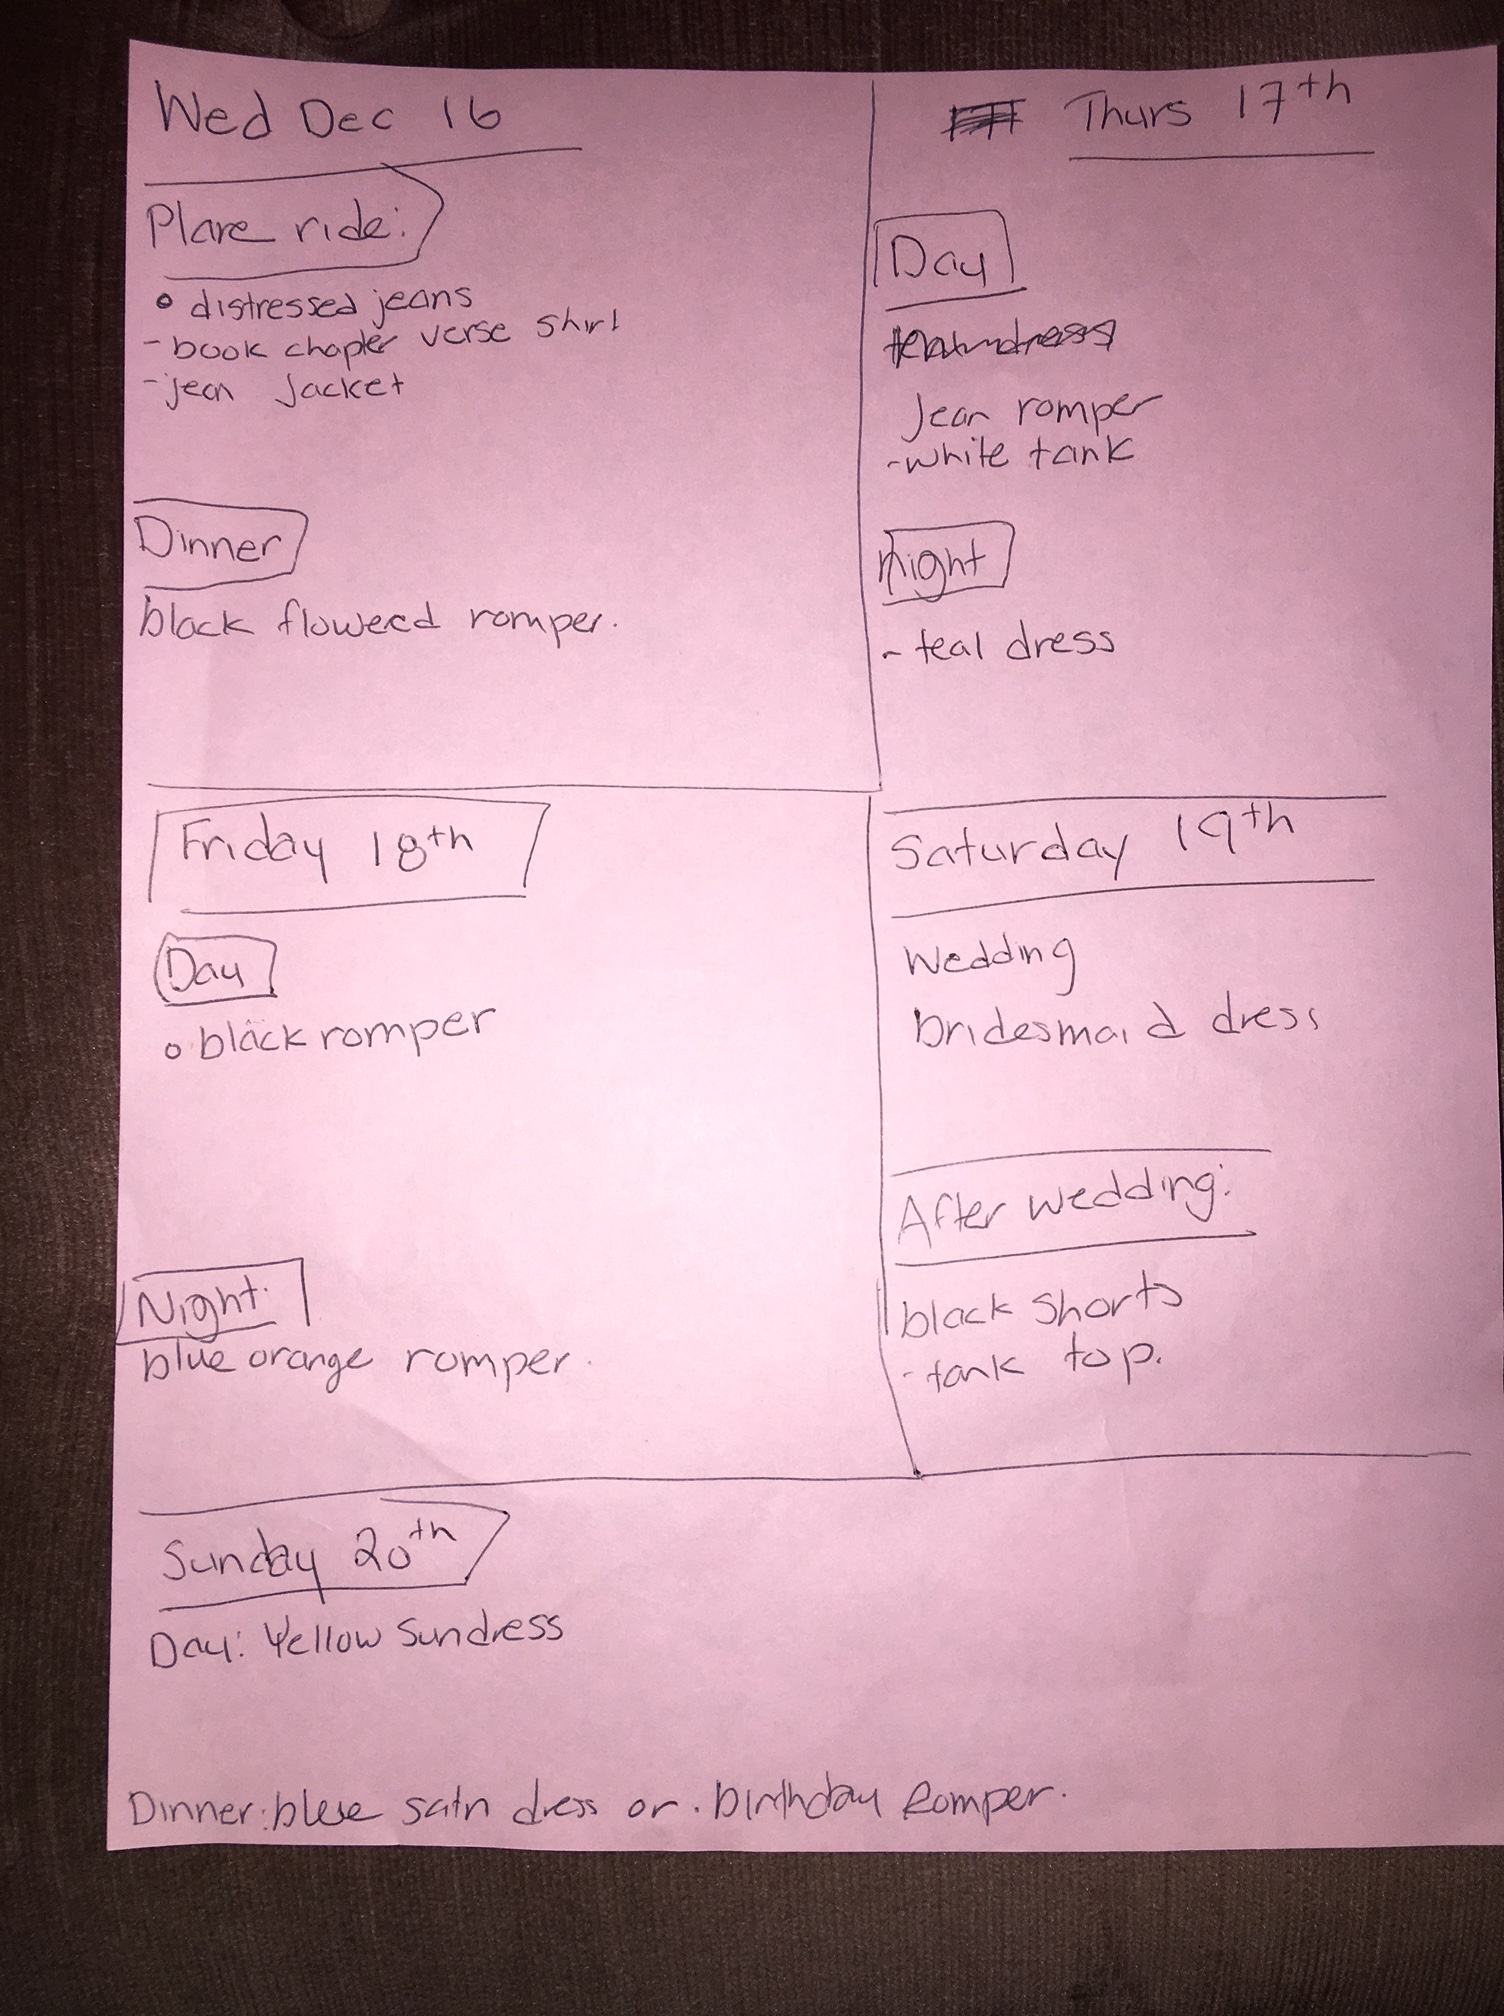 Wed Dec 16
Plane ride:
• distressed jeans
- book chapter verse shirt
- jean Jacket
Dinner
black floweed romper.
Thurs 17th
Day
Jean romper
- white tank
night
- teal dress
Friday 18th
Day
• black romper
Night:
blue orange romper.
Saturday 19th
Wedding
bridesmaid dress
After wedding:
black shorts
- tank top.
Sunday 20th
Day: Yellow Sundress
Dinner: blue satn dress or. birthday Romper.